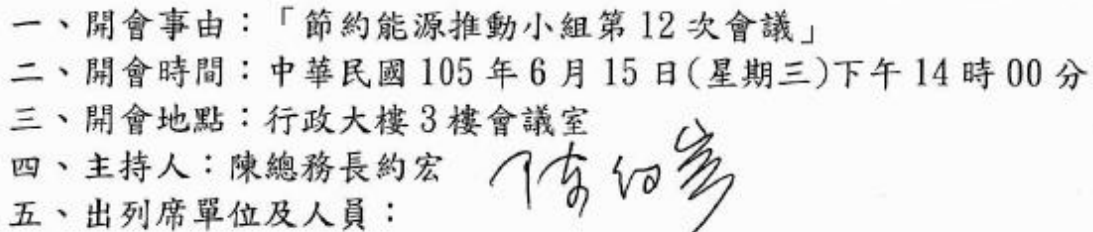 一、開會事由：「節約能源推動小組第 12 次會議」
二、開會時間：中華民國 105 年 6 月 15 日(星期三)下午 14 時 00 分
三、開會地點：行政大樓 3 樓會議室
四、主持人：陳總務長約宏 陳約宏
五、出列席單位及人員：